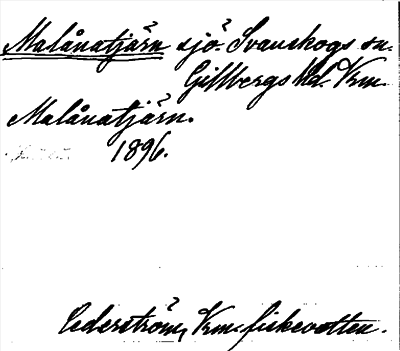 Malånatjärn sjö. Svanskogs sn.
Gillbergs hd. Vrm.
Malånatjärn.
1896.
Cederström, Vrm. fiskevatten.